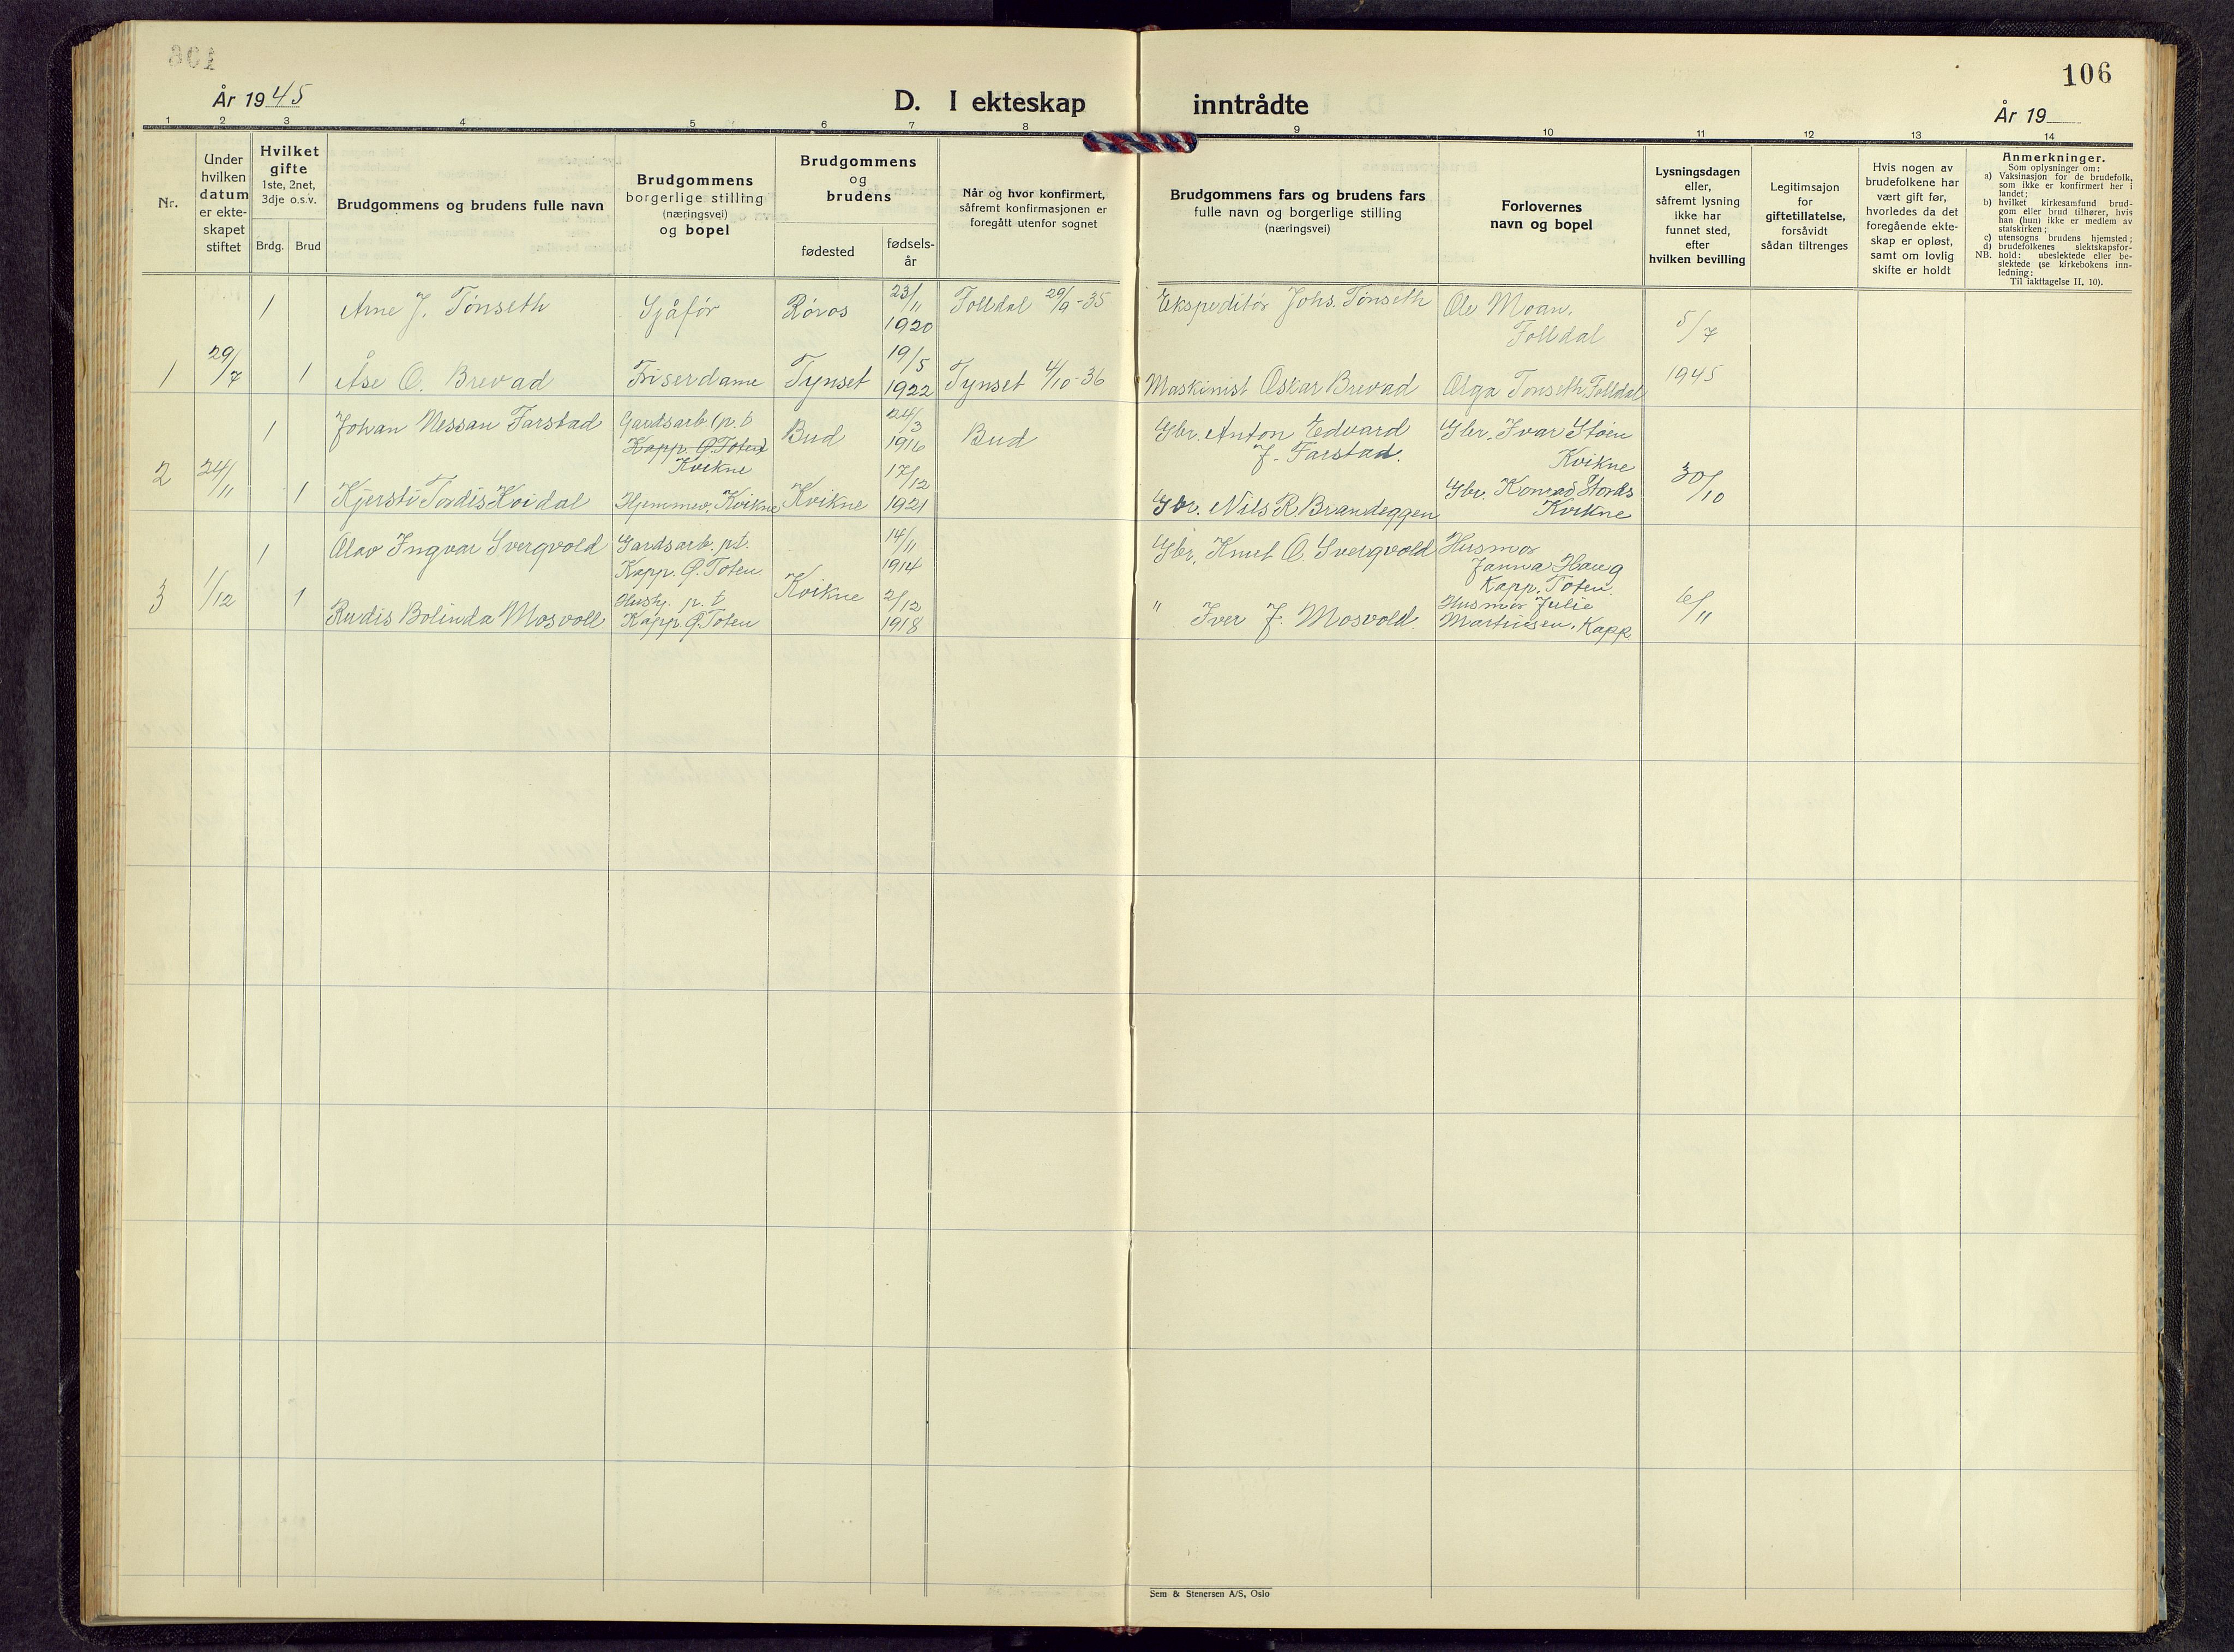 106
År 1945
D. I ekteskap inntrådte
År 19
1 2 3 4 5 6 7 8 9 10 11 12 13 14
Nr.
Under
hvilken
datum
er ekte-
skapet
stiftet
Hvilket
gifte
1ste, 2net,
3dje o.s.v.
Brdg. Brud
Brudgommens og brudens fulle navn
Brudgommens
borgerlige stilling
(næringsvei)
og bopel
Brudgommens
og
brudens
fødested
fødsels-
år
Når og hvor konfirmert,
såfremt konfirmasjonen er
foregått utenfor sognet
Brudgommens fars og brudens fars
fulle navn og borgerlige stilling
(næringsvei)
Forlovernes
navn og bopel
Lysningsdagen
eller,
såfremt lysning
ikke har
funnet sted,
efter
hvilken bevilling
Legitimsajon
for
giftetillatelse,
forsåvidt
sådan tiltrenges
Hvis nogen av
brudefolkene har
vært gift før,
hvorledes da det
foregående ekte-
skap er opløst,
samt om lovlig
skifte er holdt
Anmerkninger.
Som oplysninger om:
a) Vaksinasjon for de brudefolk,
som ikke er konfirmert her i
landet;
b) hvilket kirkesamfund brud-
gom eller brud tilhører, hvis
han (hun) ikke er medlem av
statskirken;
c) utensogns brudens hjemsted;
d) brudefolkenes slektskapsfor-
NB. hold: ubeslektede eller be-
slektede (se kirkebokens inn-
ledning:
Til iakttagelse II. 10).
1 Arne J. Tønseth Sjåfør Røros 23/11 1920 Folldal 29/9-35 Ekspeditør Johs. Tønseth Ole Moan, Folldal 5/7
1 29/7 1 Åse O. Brevad Friserdame Tynset 19/5 1922 Tynset 4/10-36 Maskinist Oskar Brevad Olga Tønseth, Folldal 1945
1 Johan Nessan Farstad Gardsarb. (p.t. Kapp. Ø. Toten Kvikne Bud 24/3 1916 Bud Gbr. Anton Edvard J. Farstad. Gbr. Ivar Støen Kvikne
2 24/11 1 Kjersti Tordis Kvidal Hjemmev. Kvikne Kvikne 17/12 1921 Gbr. Nils R. Brandeggen Gbr. Konrad Kvikne 30/10
1 Olav Ingvar Svergvold Gardsarb. pt. Kapp. Ø. Toten. 14/11 1914 Gbr. Knut O. Svergvold Husmor Janna Haug Kapp. Toten.
3 1/12 1 Rudis Bolinda Mosvoll Hush. p.t. Kapp. Ø. Toten Kvikne 2/12 1918 " Iver J. Mosvold. Husmor Julie Martinsen, Kapp 6/11
Sem & Stenersen A/S, Oslo